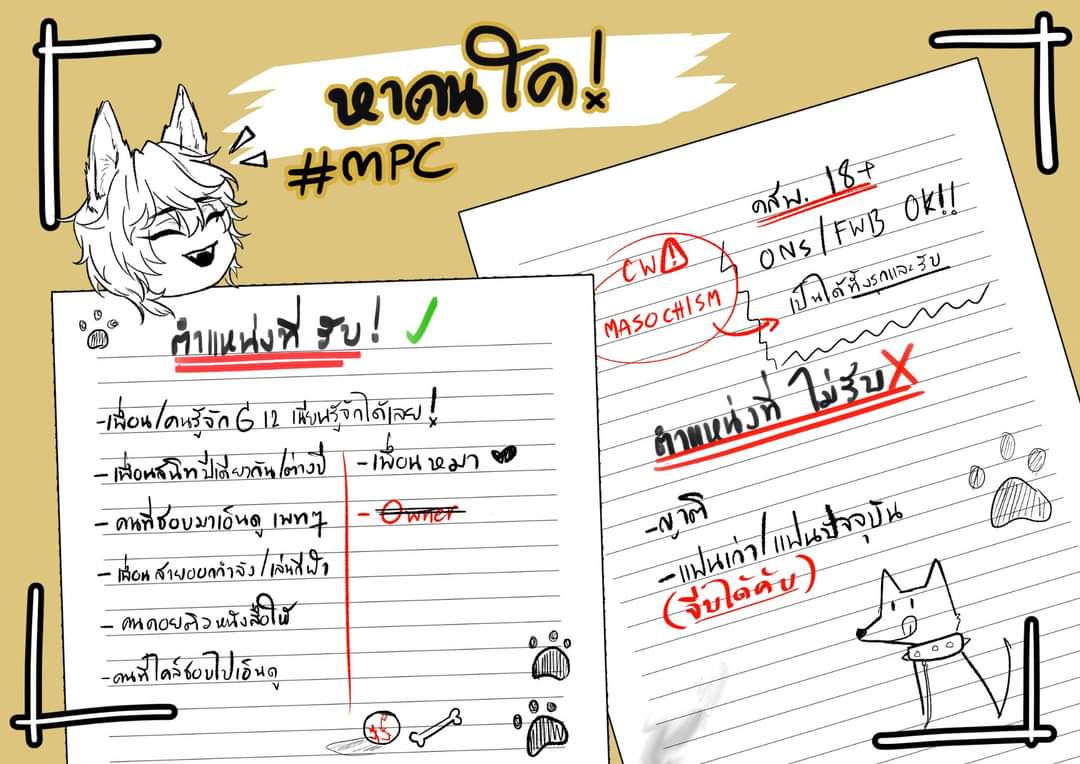 หาคนโค!
#MPC
ตำแหน่งที่ รับ!
-เพื่อน/คนรู้จัก G 12 เนียนรู้จักได้เลย!
-เพื่อนสนิทปีเดียวกัน/ต่างปี
- คนที่ชอบมาเอ็นดู เพทๆ
-เพื่อนสายออกกำลัง/เล่นกีฬา
- คนคอยติวหนังสือให้
-คนที่โคล์ชอบไปเอ็นดู
-เพื่อน หมา
- Owner
คสพ. 18+
ONS/FWB OK!!
เป็นได้ทั้งรุกและรับ
CW
MASOCHISM
ตำแหน่งที่ ไม่รับ X
-ญาติ
-แฟนเก่า/แฟนปัจจุบัน
(จีบได้คับ)